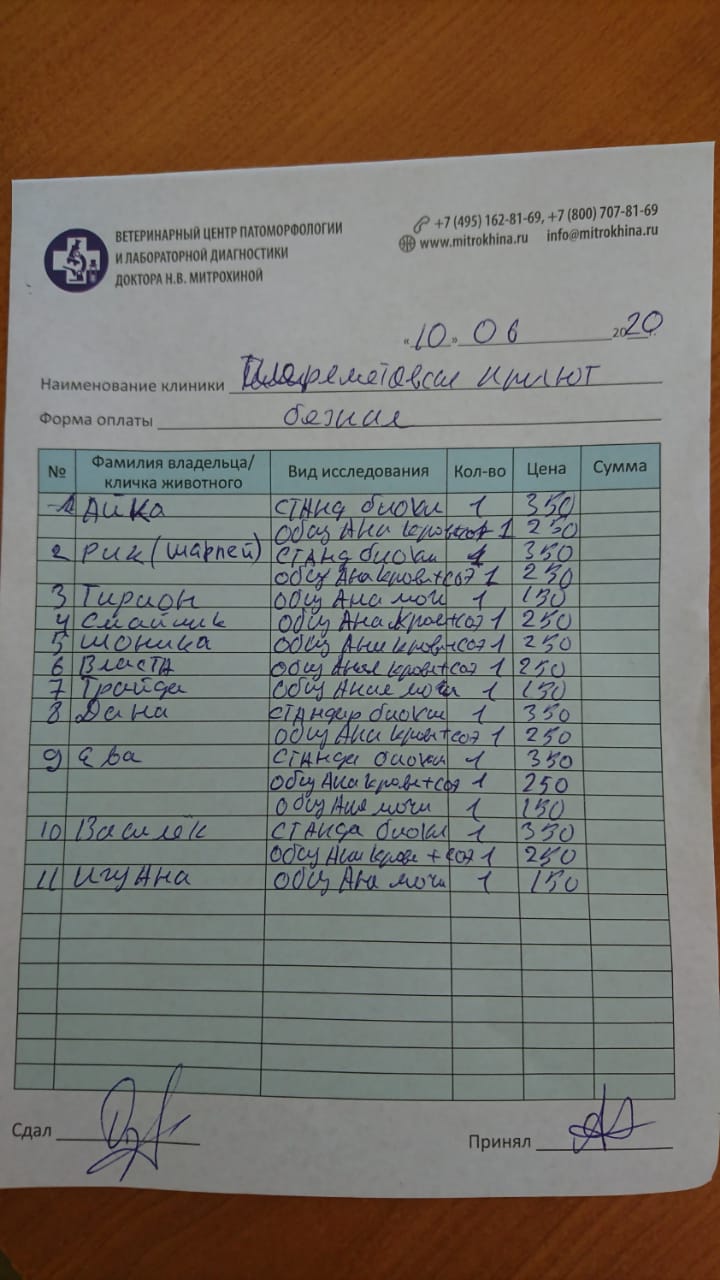 ВЕТЕРИНАРНЫЙ ЦЕНТР ПАТОМОРФОЛОГИИ
И ЛАБОРАТОРНОЙ ДИАГНОСТИКИ
ДОКТОРА Н.В. МИТРОХИНОЙ
+7 (495) 162-81-69, +7 (800) 707-81-69
www.mitrokhina.ru info@mitrokhina.ru
«10» 06 2020
Наименование клиники приют
Форма оплаты безнал
№ Фамилия владельца/ кличка животного Вид исследования Кол-во Цена Сумма
1 Айка СТАНД биохи 1 350
общ Ана кров+соэ 1 250
2 Рик (шарпей) СТАНД биохи 1 350
общ Ана крови+соэ 1 250
3 Тирион общ Ана мочи 1 150
4 общ Ана кров+соэ 1 250
5 Моника общ Ана кров+соэ 1 250
6 Власта общ Анал крови+соэ 1 250
7 общ Анал мочи 1 150
8 Дана СТАНдар биохи 1 350
общ Ана кров+соэ 1 250
9 Ева СТАНда биохи 1 350
общ Ана крови+соэ 1 250
общ Анал мочи 1 150
10 Василёк СТАНда биохи 1 350
общ Ана крови +соэ 1 250
11 Игуана общ Ана мочи 1 150
Сдал
Принял